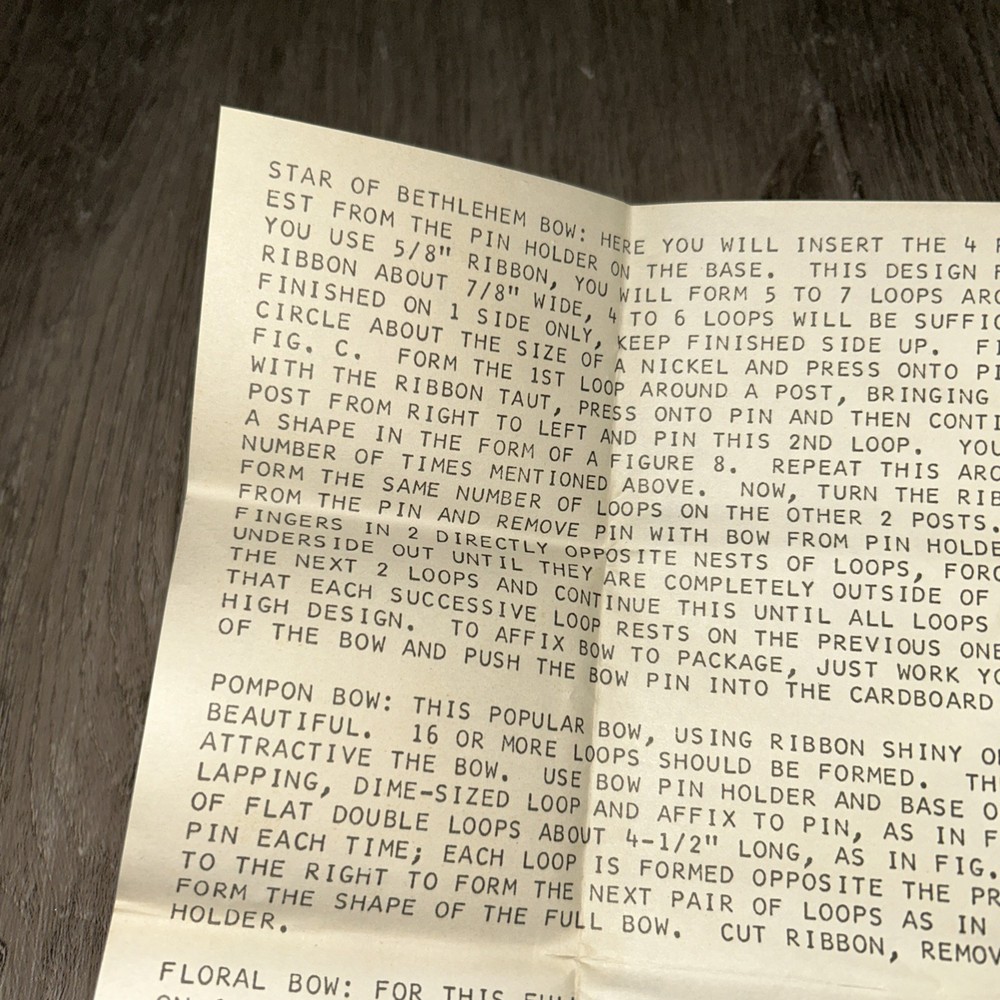 STAR OF BETHLEHEM BOW: HERE YOU WILL INSERT THE 4
EST FROM THE PIN HOLDER ON THE BASE. THIS DESIGN
YOU USE 5/8" RIBBON, YOU WILL FORM 5 TO 7 LOOPS
RIBBON ABOUT 7/8" WIDE, 4 TO 6 LOOPS WILL BE
FINISHED ON 1 SIDE ONLY, KEEP FINISHED SIDE UP.
CIRCLE ABOUT THE SIZE OF A NICKEL AND PRESS ONTO
FIG. C. FORM THE 1ST LOOP AROUND A POST, BRINGING
WITH THE RIBBON TAUT, PRESS ONTO PIN AND THEN
POST FROM RIGHT TO LEFT AND PIN THIS 2ND LOOP.
A SHAPE IN THE FORM OF A FIGURE 8. REPEAT THIS
NUMBER OF TIMES MENTIONED ABOVE. NOW, TURN THE
FORM THE SAME NUMBER OF LOOPS ON THE OTHER 2 POSTS.
FROM THE PIN AND REMOVE PIN WITH BOW FROM PIN
FINGERS IN 2 DIRECTLY OPPOSITE NESTS OF LOOPS,
UNDERSIDE OUT UNTIL THEY ARE COMPLETELY OUTSIDE OF
THE NEXT 2 LOOPS AND CONTINUE THIS UNTIL ALL LOOPS
THAT EACH SUCCESSIVE LOOP RESTS ON THE PREVIOUS
HIGH DESIGN. TO AFFIX BOW TO PACKAGE, JUST WORK
OF THE BOW AND PUSH THE BOW PIN INTO THE CARDBOARD
POMPON BOW: THIS POPULAR BOW, USING RIBBON SHINY
BEAUTIFUL. 16 OR MORE LOOPS SHOULD BE FORMED.
ATTRACTIVE THE BOW. USE BOW PIN HOLDER AND BASE
LAPPING, DIME-SIZED LOOP AND AFFIX TO PIN, AS IN
OF FLAT DOUBLE LOOPS ABOUT 4-1/2" LONG, AS IN FIG.
PIN EACH TIME; EACH LOOP IS FORMED OPPOSITE THE
TO THE RIGHT TO FORM THE NEXT PAIR OF LOOPS AS IN
FORM THE SHAPE OF THE FULL BOW. CUT RIBBON,
HOLDER.
FLORAL BOW: FOR THIS